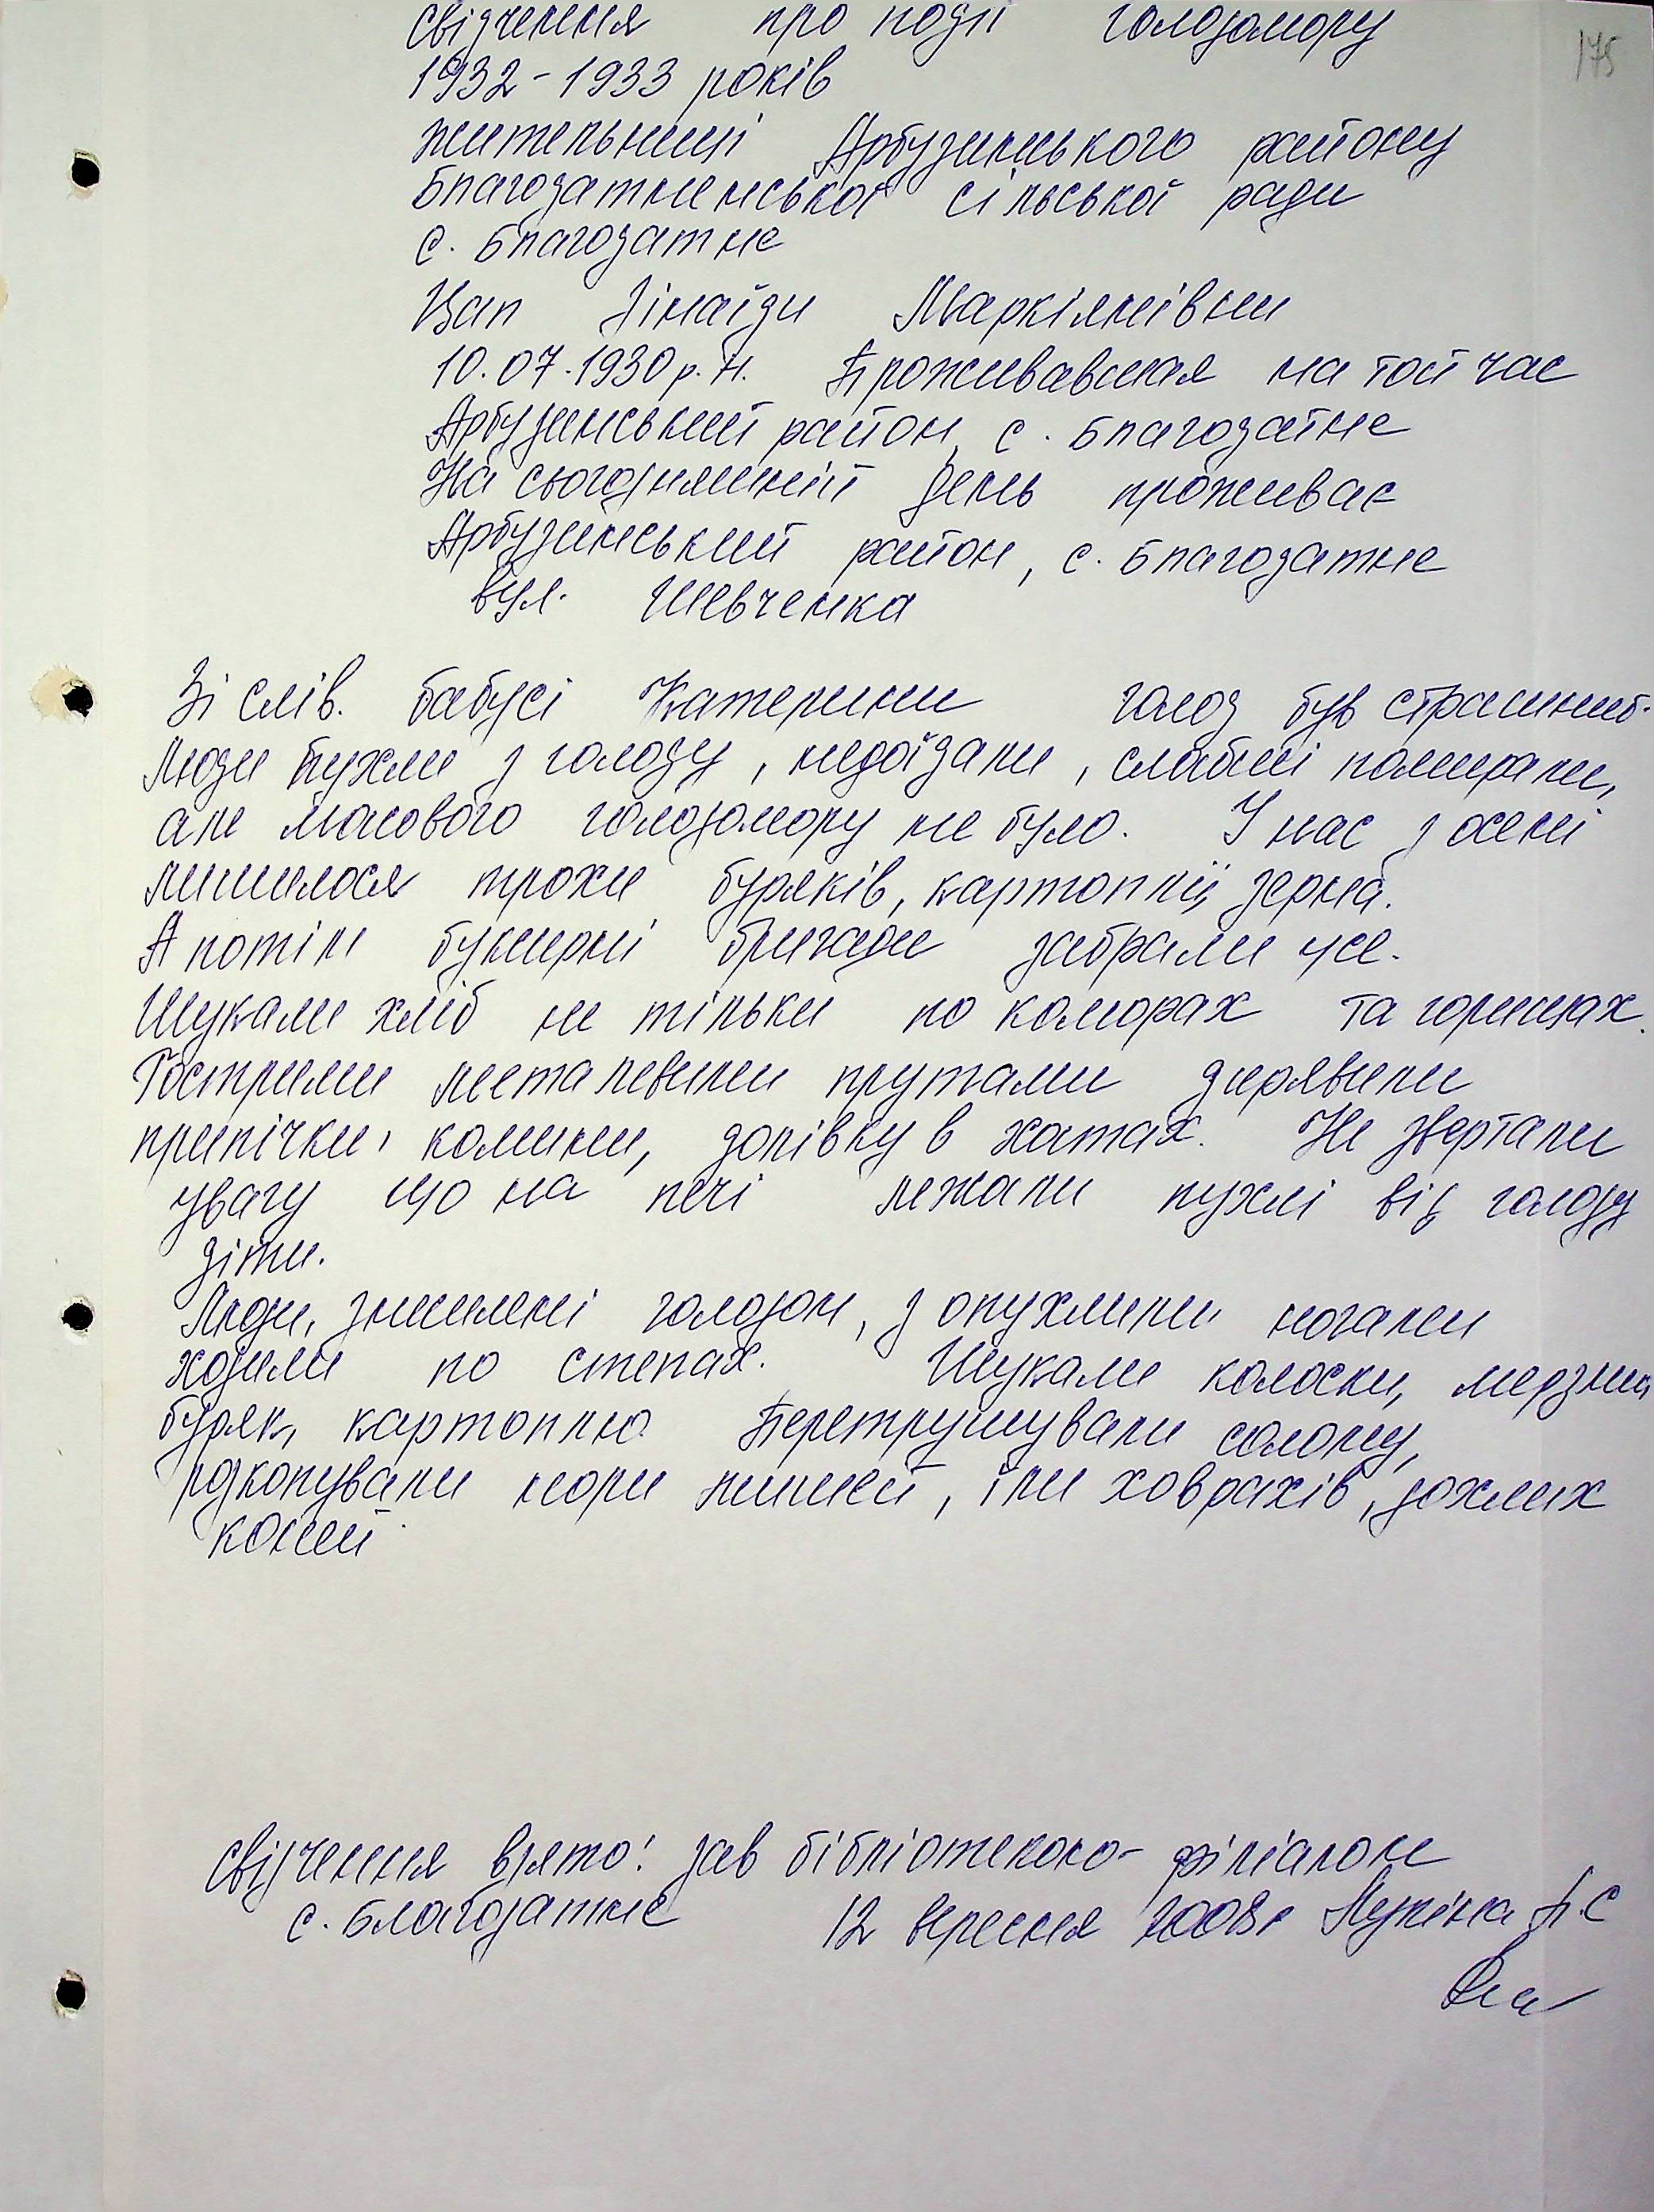 175
свідчення про події голодомору
1932-1933 років
жительниці Арбузинського району
Благодатненської сільської ради
с. Благодатне
Цап Зінаїди Маркіянівни
10.07.1930 р.н. Проживавшая на той час
Арбузинський район, с. Благодатне
На сьогоднішній день проживає
Арбузинський район, с. Благодатне
вул. Шевченка
Зі слів. бабусі Катерини голод був страшний.
Люди пухли з голоду, недоїдали, слабші помирали,
але масового голодомору не було. У нас з осені
лишилося трохи буряків, картоплі, зерна.
А потім буксирні бригади забрали усе.
Шукали хліб не тільки по коморах та горищах.
Гострими металевими прутами дирявили
припічки, комини, долівку в хатах. Не звертали
увагу що на печі лежали пухлі від голоду
діти.
Люди, знесилені голодом, з опухлими ногами
ходили по степах. Шукали колоски, мерзлий
буряк, картоплю. Перетрушували солому,
розкопували нори мишей, їли ховрахів, дохлих
коней.
Свідчення взято: зав бібліотекою-філіалом
с. Благодатне 12 вересня 2008р